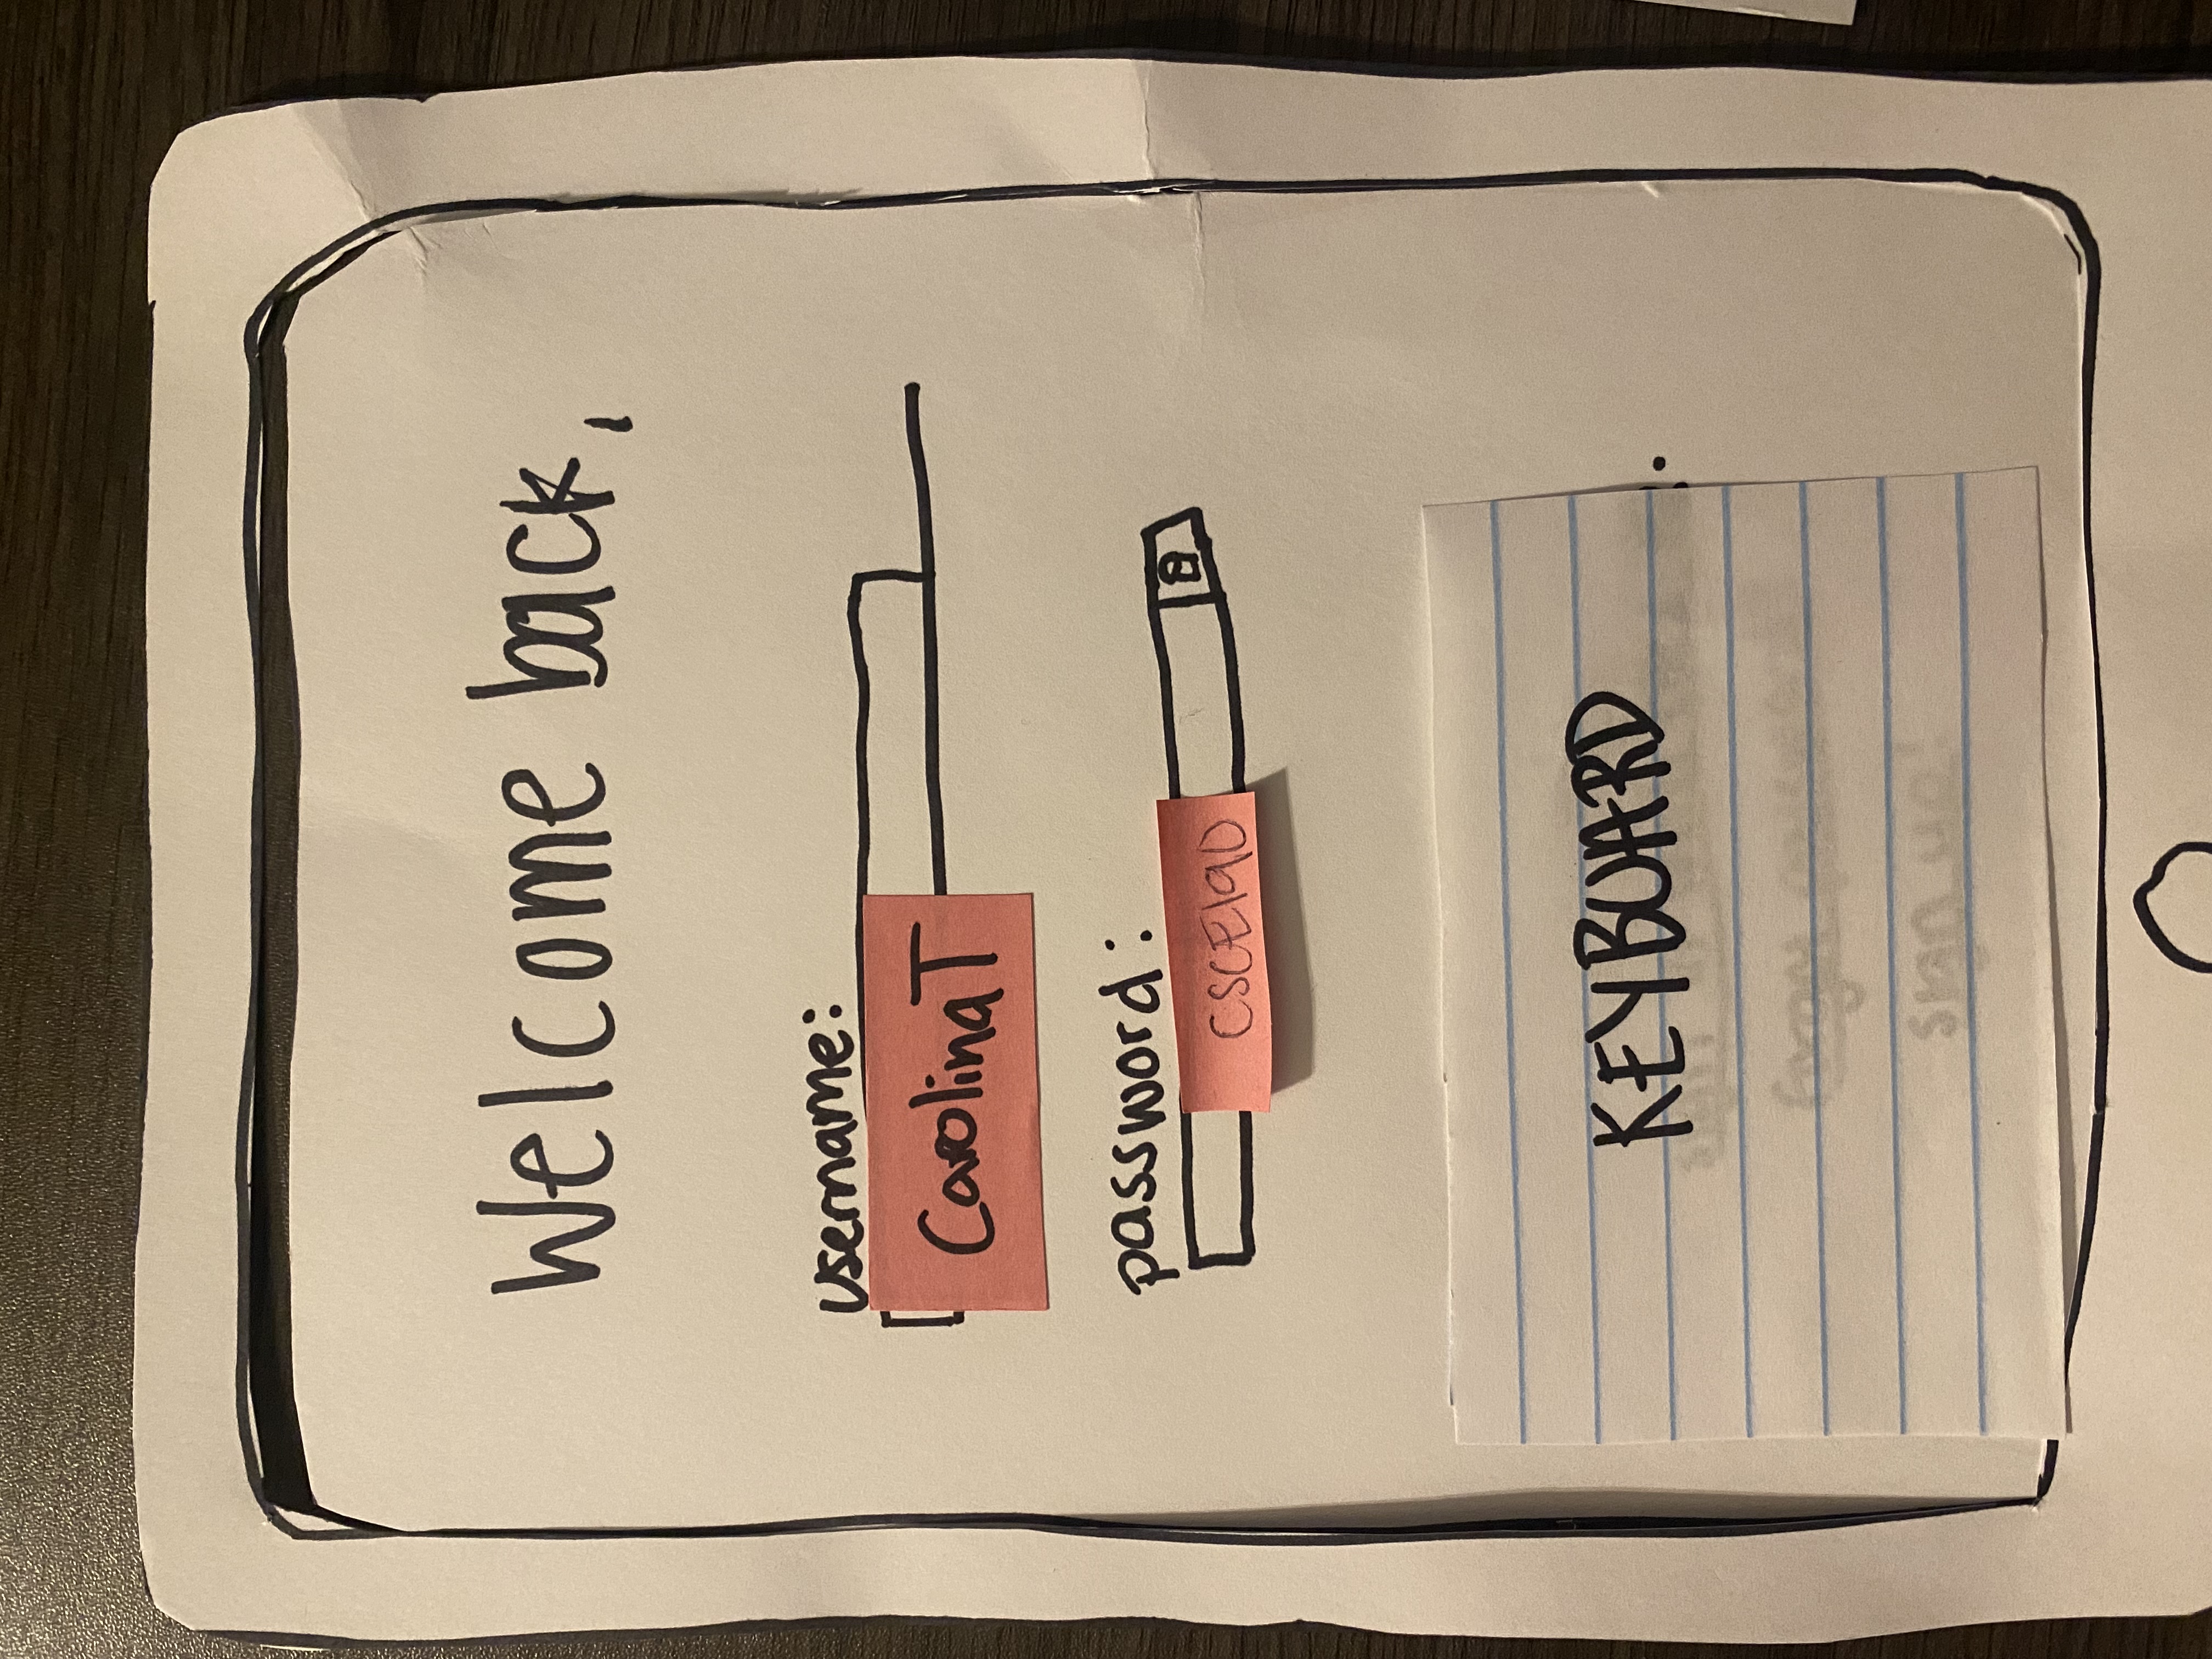 Welcome back,
username:
CarolinaT
password:
CSCE190
KEYBOARD
forgot password
sign up!